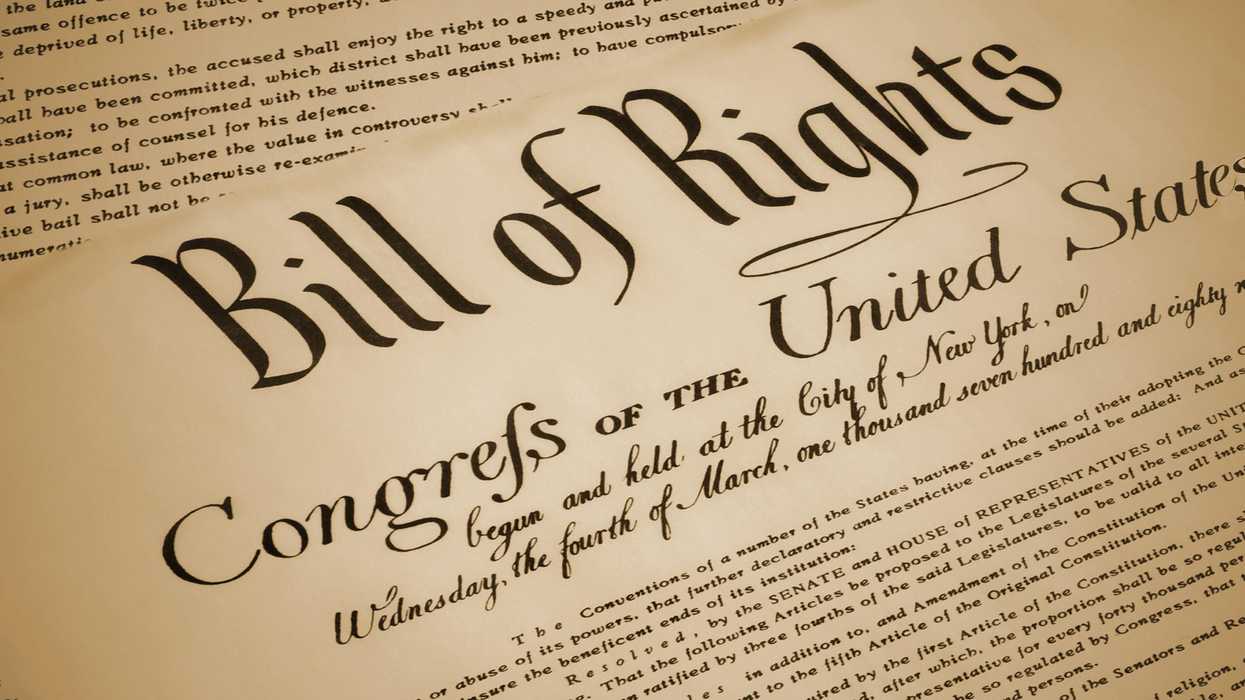 the land
same offence to be twice
deprived of life, liberty, or property,
prosecutions, the accused shall enjoy the right to a speedy and
have been committed, which district shall have been previously ascertained by
to be confronted with the witnesses against him; to have compulsory
assistance of counsel for his defence.
common law, where the value in controversy
a jury, shall be otherwise
bail shall not be
Bill of Rights
Congreſs OF THE United States
begun and held at the City of New York, on
Wednesday, the fourth of March, one thousand seven hundred and eighty
The Conventions of a number of the States having, at the time of their adopting the
or abuse of its powers, that further declaratory and restrictive clauses should be added: And as
the beneficent ends of its institution:
Resolved, by the SENATE and HOUSE of REPRESENTATIVES of the
That the following Articles be proposed to the Legislatures of the several
ratified by three fourths of the said Legislatures, to be valid to all
in addition to, and Amendment of the Constitution of the
to the fifth Article of the Original Constitution.
by the first Article of the Constitution, there
after which, the proportion shall be so
for every forty thousand
be so regulated by Congress, that
persons.
of the Senators and
religion,